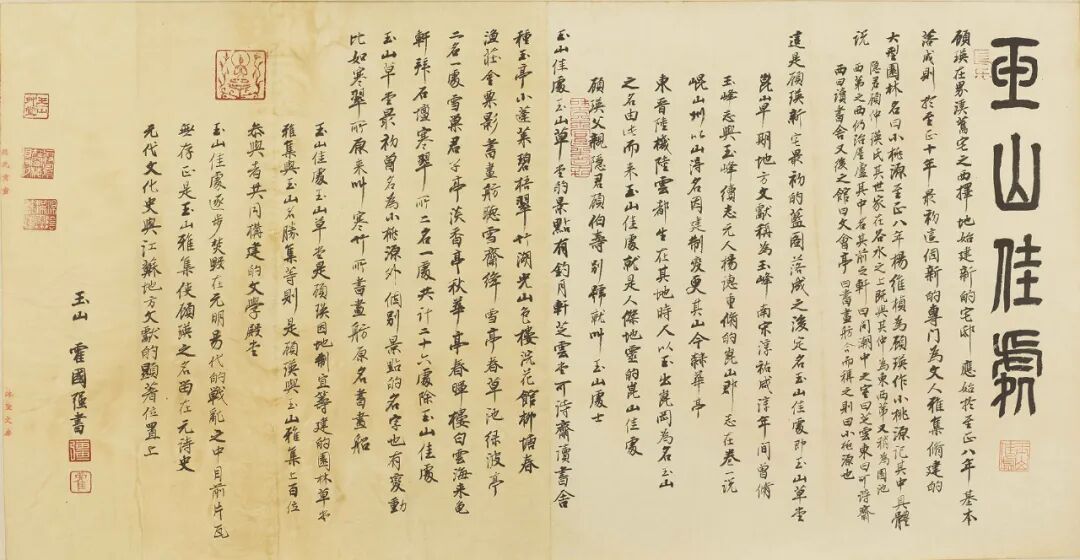 玉山佳處
顧瑛在界溪舊宅之西擇地始建新的宅邸 應始於至正八年 基本
落成則於至正十年 最初這個新的專門為文人雅集脩建的
大型園林名曰小桃源至正八年楊維楨為顧瑛作小桃源記其中具體
說 隐君顧仲瑛氏其世家在谷水之上既與其仲為東西第又稍為園池
西第之西仍治屋廬其中名其前之軒曰問潮中之室曰芝雲東曰可詩齋
西曰讀書舍又後之館曰文會亭曰書畫舫合而稱之則曰小桃源也
這是顧瑛新宅最初的藍圖落成之後定名玉山佳處即玉山草堂
崑山早期地方文獻稱為玉峰南宋淳祐咸淳年間曾脩
玉峰志與玉峰續志元人楊譓重脩的崑山郡志在卷一說
崐山州以山得名因建制變更其山今隸華亭
東晉陸機陸雲都生在其地時人以玉出崑岡為名玉山
之名由此而来玉山佳處就是人傑地靈的崑山佳處
顧瑛父親隐君顧伯壽别號就叫玉山處士
玉山佳處玉山草堂的景點有釣月軒芝雲堂可詩齋讀書舍
種玉亭小蓬莱碧梧翠竹湖光山色樓浣花館柳塘春
漁莊金粟影書畫舫聽雪齋絳雪亭春草池緑波亭
二名一處雪巢君子亭淡香亭秋華亭春暉樓白雲海来龜
軒拜石壇寒翠所二名一處共计二十六處除玉山佳處
玉山草堂最初曾名為小桃源外個别景點的名字也有變動
比如寒翠所原来叫寒竹所書畫舫原名書畫船
玉山佳處玉山草堂是顧瑛因地制宜籌建的園林草堂
雅集與玉山名勝集等則是顧瑛與玉山雅集上百位
参與者共同構建的文學殿堂
玉山佳處逐步焚毀在元明易代的戰亂之中目前片瓦
無存正是玉山雅集使顧瑛之名留在元詩史
元代文化史與江蘇地方文獻的顯著位置上
玉山 霍國強書